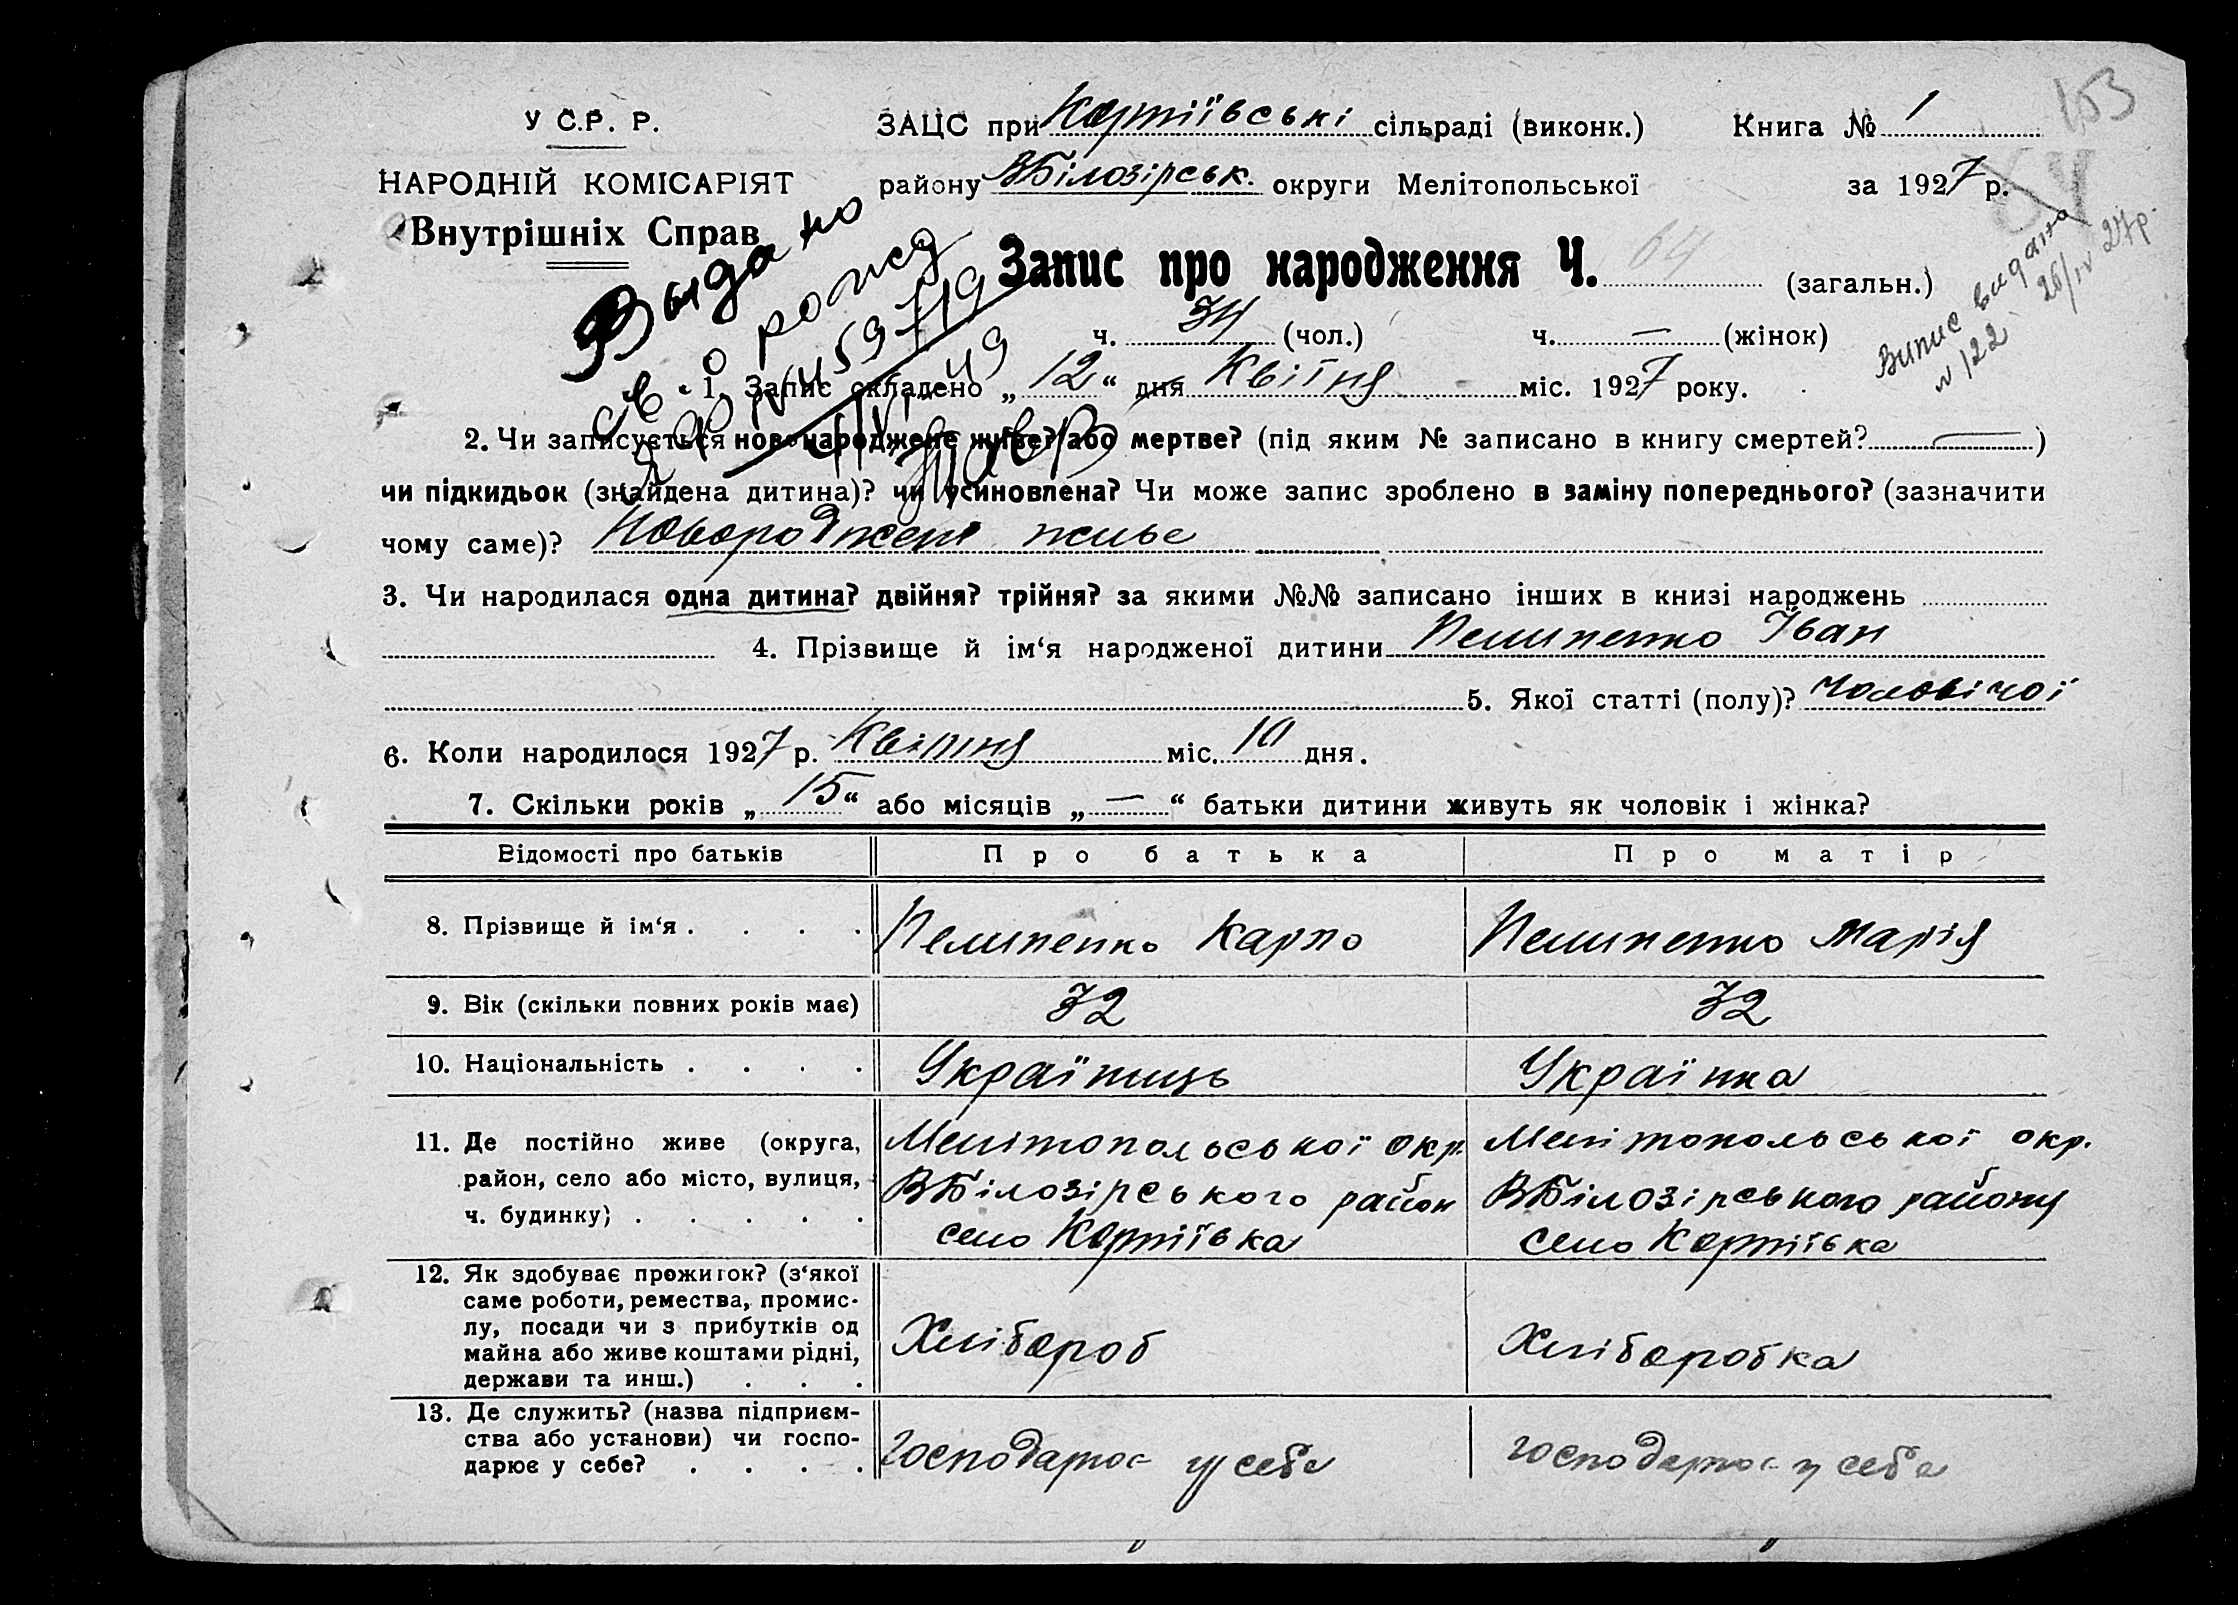 153
У С.Р. Р.
ЗАЦС при Картіївські сільраді (виконк.) Книга № 1
НАРОДНІЙ КОМІСАРІЯТ
району ВБілозірськ. округи Мелітопольської за 1927 р.
Внутрішніх Справ
Запис про народження Ч. 64 (загальн.)
Выдано
св. о рожд
Випис видано
№ 122 26/IV 27р.
ч. 34 (чол.) ч. — (жінок)
1. Запис складено „ 12 “ дня Квітня міс. 1927 року.
2. Чи записується новонароджене живе? або мертве? (під яким № записано в книгу смертей? — )
чи підкидьок (знайдена дитина)? чи усиновлена? Чи може запис зроблено в заміну попереднього? (зазначити
чому саме)? Новороджене живе
3. Чи народилася одна дитина? двійня? трійня? за якими №№ записано інших в книзі народжень
4. Прізвище й ім‘я народженої дитини Пелипенко Іван
5. Якої статті (полу)? Чоловічої
6. Коли народилося 1927 р. Квітня міс. 10 дня.
7. Скільки років „ 15 “ або місяців „ — “ батьки дитини живуть як чоловік і жінка?
Відомості про батьків Про батька Про матір
8. Прізвище й ім‘я . . . . Пелипенко Карпо Пелипенко Марія
9. Вік (скільки повних років має) 32 32
10. Національність . . . . Українець Українка
11. Де постійно живе (округа, Мелітопольської окр. Мелітопольської окр.
район, село або місто, вулиця, ВБілозірського район ВБілозірського району
ч. будинку) . . . . . село Картіївка село Картіївка
12. Як здобуває прожиток? (з‘якої
саме роботи, ремества, промис-
лу, посади чи з прибутків од
майна або живе коштами рідні, Хлібороб Хліборобка
держави та инш.) . . .
13. Де служить? (назва підприєм-
ства або установи) чи госпо-
дарює у себе? . . . . Господарює у себе господарює у себе